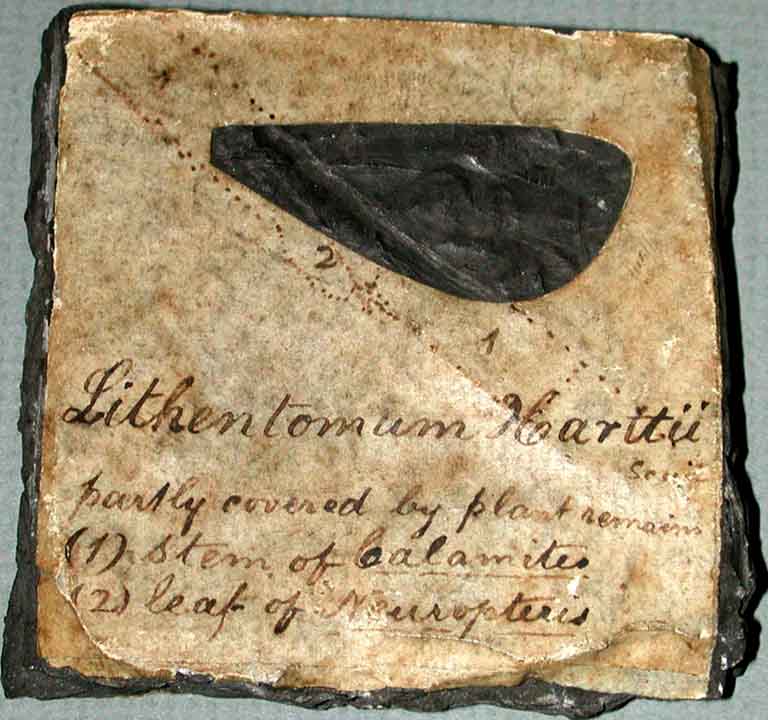 2
1
Lithentomum Harttii
Scud
partly covered by plant remains
(1) Stem of Calamites
(2) leaf of Neuropteris